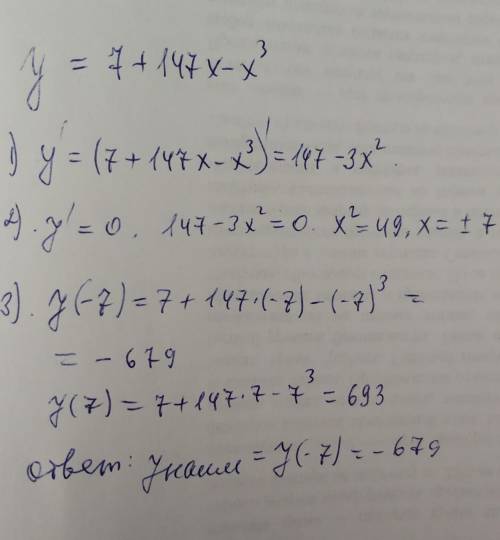 y = 7 + 147x - x³
1) y' = (7 + 147x - x³)' = 147 - 3x².
2). y' = 0. 147 - 3x² = 0. x² = 49, x = ± 7
3). y(-7) = 7 + 147·(-7) - (-7)³ =
= - 679
y(7) = 7 + 147·7 - 7³ = 693
ответ: yнаим = y(-7) = - 679